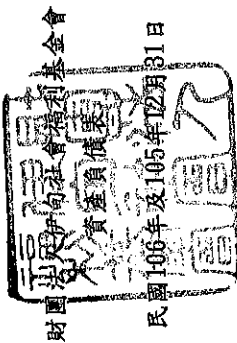 財團法人伊甸社會福利基金會
資產負債表
民國106年及105年12月31日